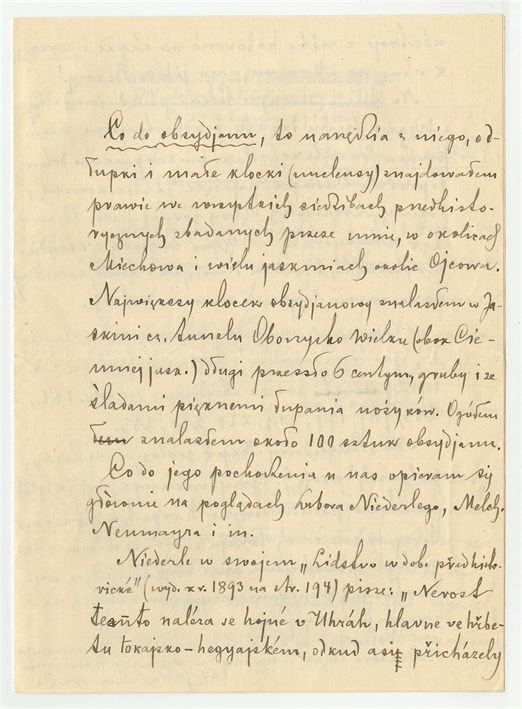 Co do obsydjanu, to narzędzia z niego, od-
łupki i małe klocki (nucleusy) znajdowałem
prawie we wszystkich siedzibach przedhisto-
rycznych zbadanych przeze mnie, w okolicach
Miechowa i wielu jaskiniach okolic Ojcowa.
Największy klocek obsydjanowy znalazłem w Ja-
skini cz. Tunelu Oborzysko Wielkie (obok Cie-
mnej jask.) długi przeszło 6 centym, gruby i ze
śladami pięknemi łupania nożyków. Ogółem
znalazłem około 100 sztuk obsydjanu.
Co do jego pochodzenia u nas opieram się
głównie na poglądach Lubora Niederlego, Melch.
Neumayra i in.
Niederle w swojem „Lidstvo v dobe předhisto-
rické" (wyd. z r. 1893 na str. 194) pisze: „Nerost
tento naléza se hojné v Uhrách, hlavne ve hřbe-
tu tokajsko-hegyajském, odkud asi přicházely